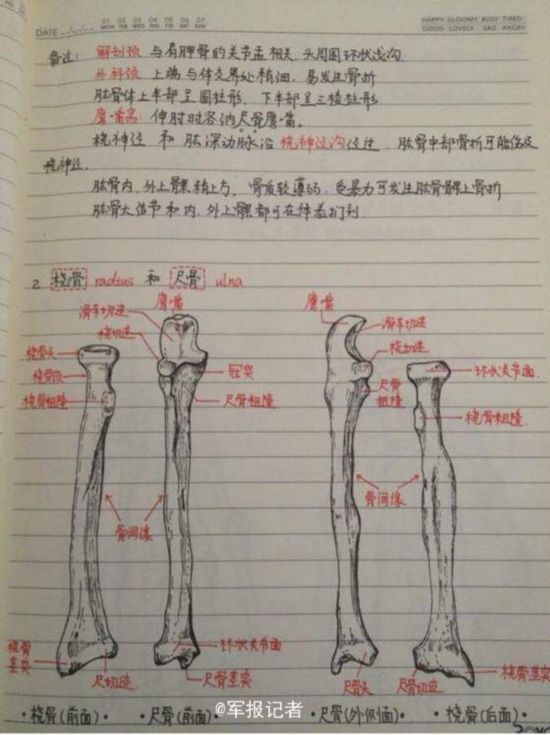 DATE
01 02 03 04 05 06 07
MON TUE WED THU FRI SAT SUN
HAPPY GLOOMY BUSY TIRED
GOOD LOVELY SAD ANGRY
备注: 解剖颈 与肩胛骨的关节盂相关, 头周围环状浅沟
外科颈 上端与体交界处稍细, 易发生骨折
肱骨体上半部呈圆柱形, 下半部呈三棱柱形
鹰嘴窝: 伸肘时容纳尺骨鹰嘴.
桡神经 和 肱深动脉沿 桡神经沟经过, 肱骨中部骨折可能伤及
桡神经.
肱骨内、外上髁稍上方, 骨质较薄弱, 受暴力可发生肱骨髁上骨折
肱骨大结节和内、外上髁都可在体表扪到.
2. 桡骨 radius 和 尺骨 ulna
鹰嘴
鹰嘴
滑车切迹
滑车切迹
桡切迹
桡切迹
桡骨头
环状关节面
桡骨颈
冠突
尺骨粗隆
桡骨粗隆
尺骨粗隆
桡骨粗隆
骨间缘
骨间缘
桡骨茎突
环状关节面
尺切迹
尺骨茎突
尺骨头
尺骨切迹
桡骨茎突
·桡骨(前面) ·尺骨(前面) ·尺骨(外侧面) ·桡骨(后面)
@军报记者